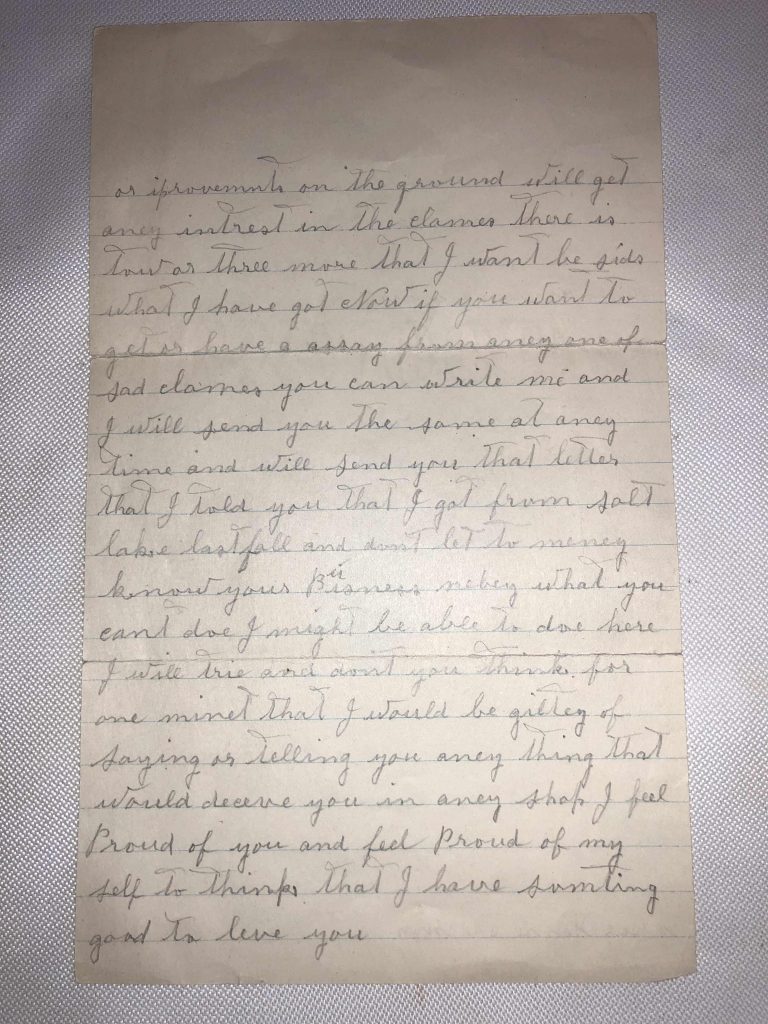 or iprovemnts on the ground will get
aney intrest in the clames there is
tow or three more that I want be sids
what I have got Now if you want to
get or have a assay from aney one of
sad clames you can write me and
I will send you the same at aney
time and will send you that letter
that I told you that I got from salt
lake last fall and dont let to meney
know your Buisness mebey what you
cant doe I might be able to doe here
I will trie and dont you think for
one minet that I would be giltey of
saying or telling you aney thing that
would deceve you in aney shap I feel
Proud of you and feel Proud of my
self to think that I have somting
good to leve you